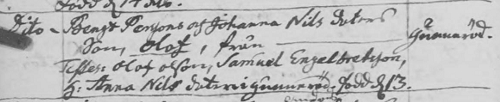 Dito – Bengt Persons och Johanna Nils doters
Son, Olof, från
Gunnaröd.
Test: Olof Olson, Samuel Engelbrektson,
h: Anna Nils doter i Gunnaröd. född d 13.